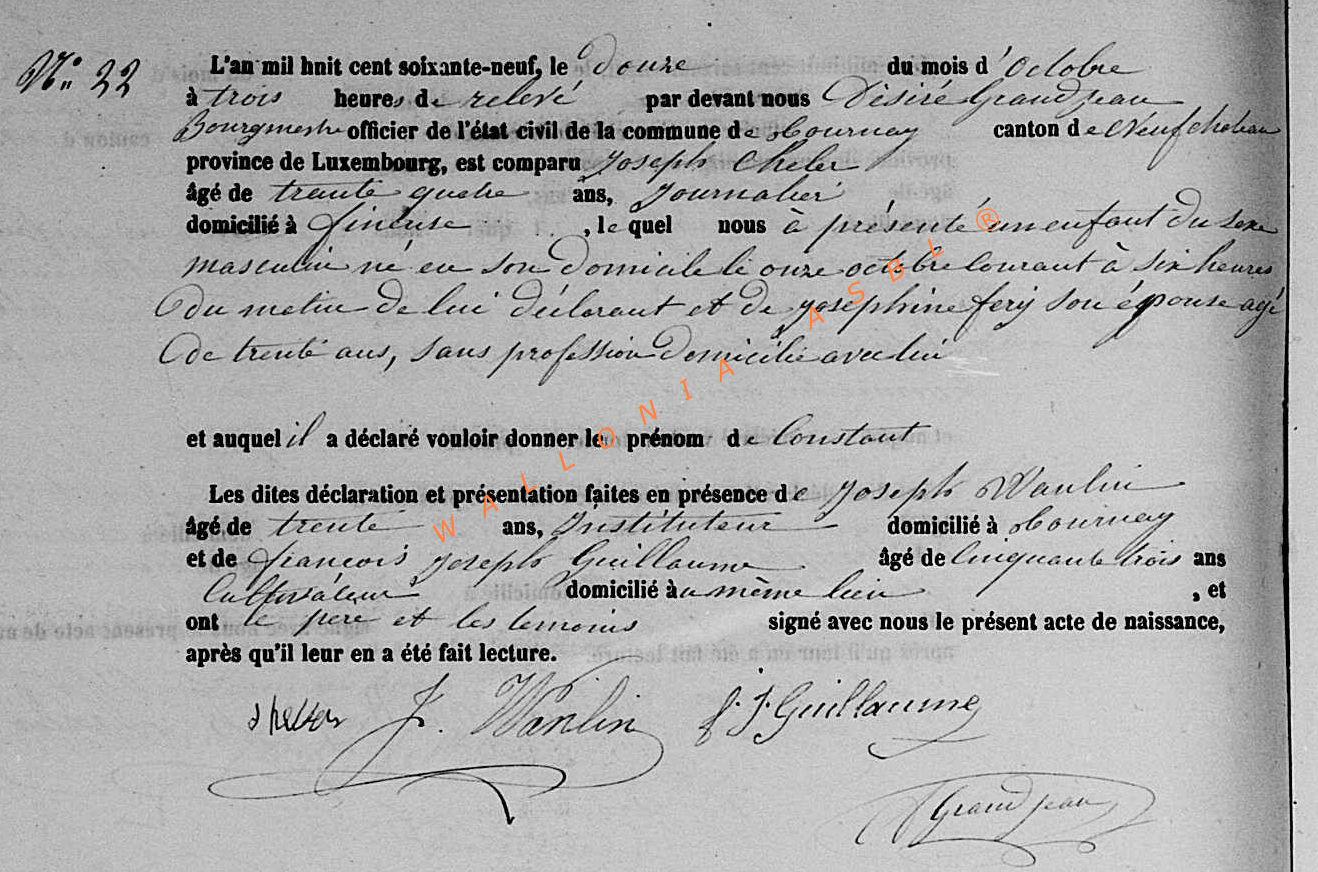 N° 22
L'an mil huit cent soixante-neuf, le Douze du mois d'Octobre
à trois heures de relevé par devant nous Désiré Grandjean
Bourgmestre officier de l'état civil de la commune de Tournay canton de Neufchateau
province de Luxembourg, est comparu Joseph
âgé de trente quatre ans, Journalier
domicilié à , le quel nous à présenté un enfant du sexe
masculin né en son domicile le onze octobre courant à six heures
Du matin de lui déclarant et de Josephine fery son épouse agé
de trente ans, sans profession Domicilié avec lui
et auquel il a déclaré vouloir donner le prénom de Constant
Les dites déclaration et présentation faites en présence de Joseph Wanlin
âgé de trente ans, Instituteur domicilié à Tournay
et de françois Joseph Guillaume âgé de Cinquante trois ans
Cultivateur domicilié au même lieu , et
ont le père et les temoins signé avec nous le présent acte de naissance,
après qu'il leur en a été fait lecture.
J. Wanlin f. J. Guillaume
Grandjean
WALLONIA ASBL ®